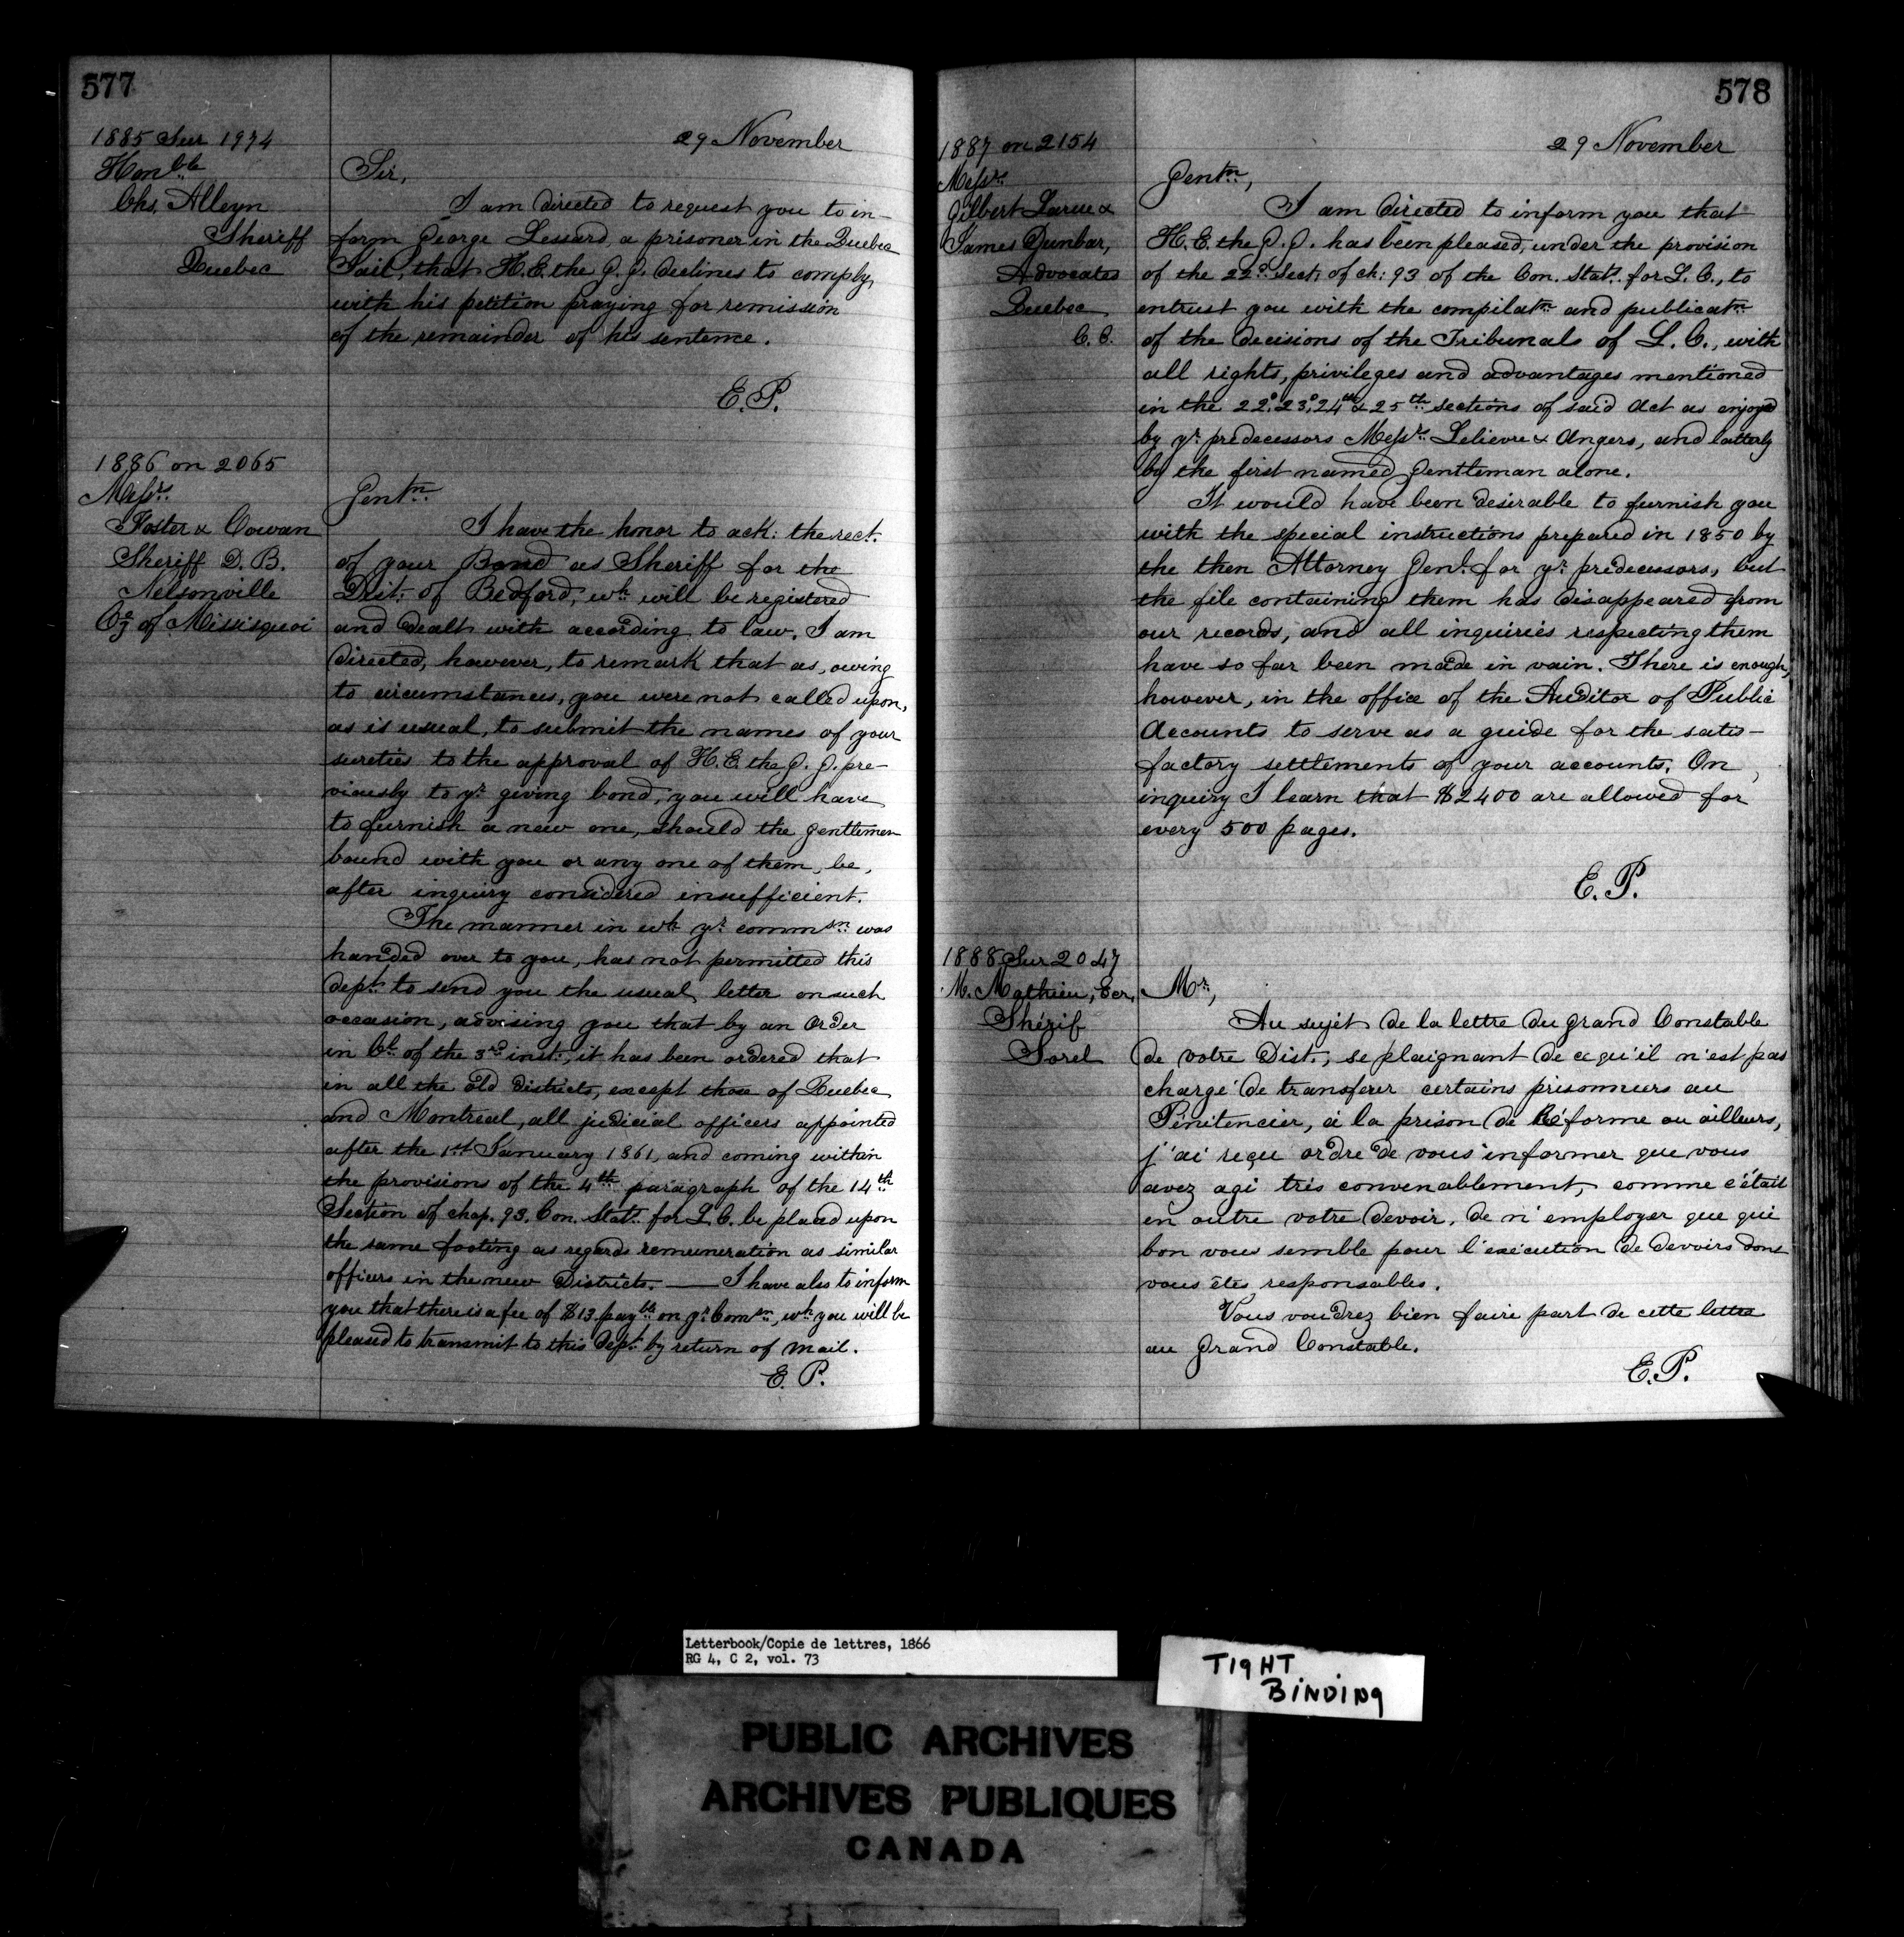 577
1885 Sur 1974
Honble
Chs. Alleyn
Sheriff
Quebec
29 November
Sir,
I am directed to request you to in-
form George Lessard, a prisoner in the Quebec
Jail, that H.E. the G.G. declines to comply
with his petition praying for remission
of the remainder of his sentence.
E.P.
1886 on 2065
Messrs.
Foster & Cowan
Sheriff D.B.
Nelsonville
Cy of Missisquoi
Gentn
I have the honor to ack: the rect.
of your Bond as Sheriff for the
Dist: of Bedford, wh: will be registered
and dealt with according to law. I am
directed, however, to remark that as, owing
to circumstances, you were not called upon,
as is usual, to submit the names of your
sureties to the approval of H.E. the G.G. pre-
viously to yr. giving bond, you will have
to furnish a new one, should the gentlemen
bound with you or any one of them, be,
after inquiry considered insufficient.
The manner in wh: yr. commsn: was
handed over to you, has not permitted this
dept. to send you the usual letter on such
occasion, advising you that by an Order
in Cl. of the 3rd inst., it has been ordered that
in all the old districts, except those of Quebec
and Montreal, all judicial officers appointed
after the 1st January 1861, and coming within
the provisions of the 4th paragraph of the 14th
Section of chap. 93. Con. Stat. for L.C. be placed upon
the same footing as regards remuneration as similar
officers in the new Districts. — I have also to inform
you that there is a fee of $13 payble on yr. Comsn, wh you will be
pleased to transmit to this dept. by return of mail.
E. P.
578
1887 on 2154
Messrs.
Gilbert Larue &
James Dunbar,
Advocates
Quebec
C. C.
29 November
Gentn,
I am directed to inform you that
H.E. the G.G. has been pleased, under the provision
of the 22d. Sect: of ch: 93 of the Con. Stats. for L. C., to
entrust you with the compilatn and publicatn
of the decisions of the Tribunals of L. C., with
all rights, privileges and advantages mentioned
in the 22d 23d 24th & 25th sections of said Act as enjoyed
by yr. predecessors Messrs. Lelievre & Angers, and latterly
by the first named gentleman alone.
It would have been desirable to furnish you
with the special instructions prepared in 1850 by
the then Attorney Genl. for yr. predecessors, but
the file containing them has disappeared from
our records, and all inquiries respecting them
have so far been made in vain. There is enough,
however, in the office of the Auditor of Public
Accounts to serve as a guide for the satis-
factory settlements of your accounts. On
inquiry I learn that $2400 are allowed for
every 500 pages.
E. P.
1888 Sur 2047
M. Mathieu, Ecr.
Shérif
Sorel
Mr,
Au sujet de la lettre du Grand Constable
de votre Dist., se plaignant de ce qu'il n'est pas
chargé de transferer certains prisonniers au
Pénitencier, à la prison de Réforme ou ailleurs,
j'ai reçu ordre de vous informer que vous
avez agi très convenablement, comme c'était
en outre votre devoir, de n'employer que qui
bon vous semble pour l'exécution de devoirs dont
vous êtes responsables.
Vous voudrez bien faire part de cette lettre
au Grand Constable.
E.P.
Letterbook/Copie de lettres, 1866
RG 4, C 2, vol. 73
TIGHT
BINDING
PUBLIC ARCHIVES
ARCHIVES PUBLIQUES
CANADA